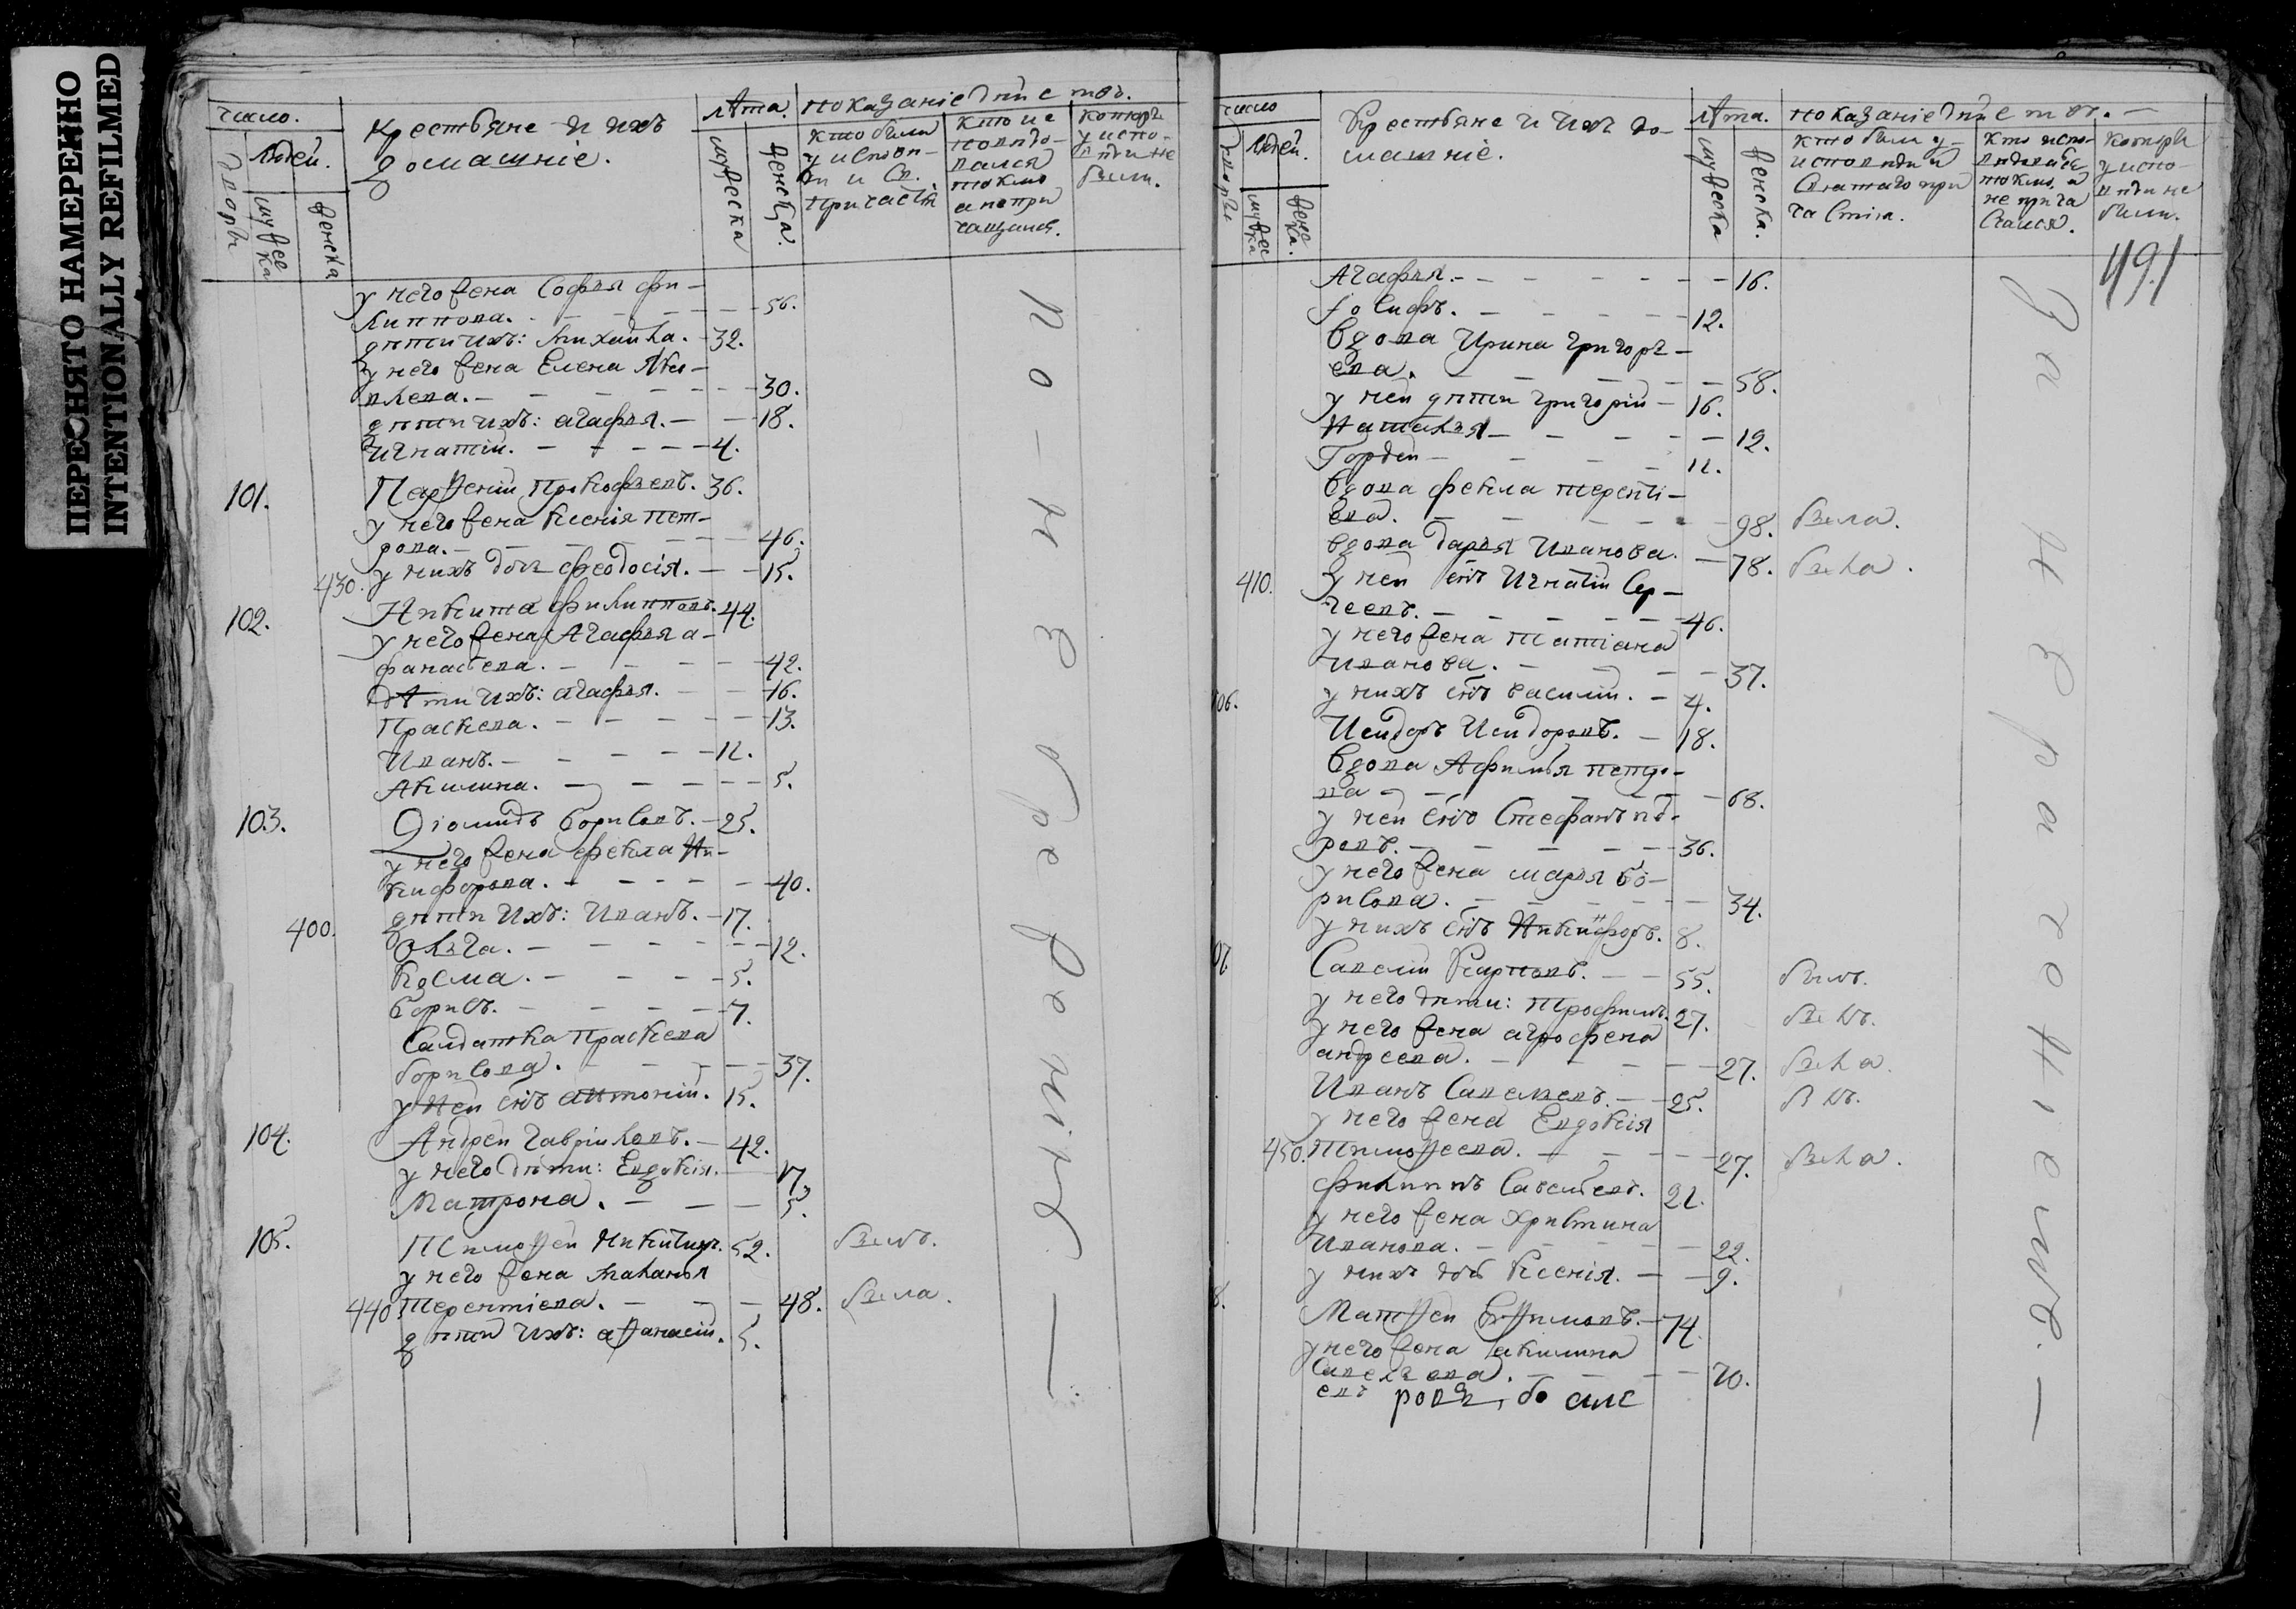 ПЕРЕСНЯТО НАМЕРЕННО
INTENTIONALLY REFILMED
число.
дворы
людей.
мужеска
женска
крестьяне и ихъ
домашніе.
лѣта.
мужеска
женска.
показаніе дѣйство.
кто были
у испов-
ди и св.
причаст
кто ис
повѣдо-
вался
токмо
а непри
чащился.
которы
у испо-
вѣди не
были.
у него жена Софья Фи-
липпова. 56.
дѣти ихъ: Михайла. 32.
у него жена Елена Яко-
влева. 30.
дѣти ихъ: Агафья. 18.
Игнатій. 4.
101. Парѳеній Прокофьевъ. 36.
у него жена Ксенія Пет-
рова. 46.
430. у нихъ дочь Феодосія. 15.
102. Никита Филипповъ. 44.
у него жена Агафья А-
фанасьева. 42.
дѣти ихъ: Агафья. 16.
Праскева. 13.
Иванъ. 12.
Акилина. 5.
103. Діомидъ Борисовъ. 25.
у него жена Фекла Ни-
кифорова. 40.
400. дѣти ихъ: Иванъ. 17.
Ольга. 12.
Козма. 5.
Борисъ. 7.
Салдатка Праскева
Борисова. 37.
у ней снъ Антоній. 15.
104. Андрей Гавріиловъ. 42.
у него дѣти: Евдокія. 17.
Матрона. 5.
105. Тимоѳей Никитинъ. 52. былъ.
у него жена Маланья
440. Терентіева. 48. была.
дѣти ихъ: Аѳанасій. 5.
по-не бреженію —
число
дворы
людей.
мужеска
женска.
Крестьяне и ихъ до-
машніе.
лѣта.
мужеска
женска.
показаніе дѣйство. —
кто были у
исповѣди и
святаго при
частія.
кто испо-
вѣдовался
токмо, а
не прича
стился.
которы
у испо-
вѣди не
были.
491
Агафья. 16.
Іосифъ. 12.
Вдова Ирина Григорь-
ева. 58.
у ней дѣти Григорій 16.
Наталья 12.
Гордей 11.
Вдова Фекла Теренті-
ева. 98. была.
Вдова Дарья Иванова. 78. была.
410. у ней снъ Игнатій Сер-
геевъ. 46.
у него жена Татіана
Иванова. 37.
106. у нихъ снъ Василій. 4.
Исидоръ Исидоровъ. 18.
Вдова Афимья Петро-
ва 68.
у ней снъ Стефанъ
ровъ. 36.
у него жена Марья Бо-
рисова. 34.
у нихъ снъ Никифоръ. 8.
07. Савелій Карповъ. 55. былъ.
у него дѣти: Трофимъ. 27. былъ.
у него жена Агрофена
Андреева. 27. была.
Иванъ Савельевъ. 25. былъ.
у него жена Евдокія
450. Тимоѳеева. 27. была.
Филиппъ Савельевъ. 21.
у него жена Христина
Иванова. 22.
у нихъ дочь Ксенія. 9.
8. Матѳей Евѳимовъ. 74.
у него жена Акилина
Савельева. 70.
за нераченіемъ. —